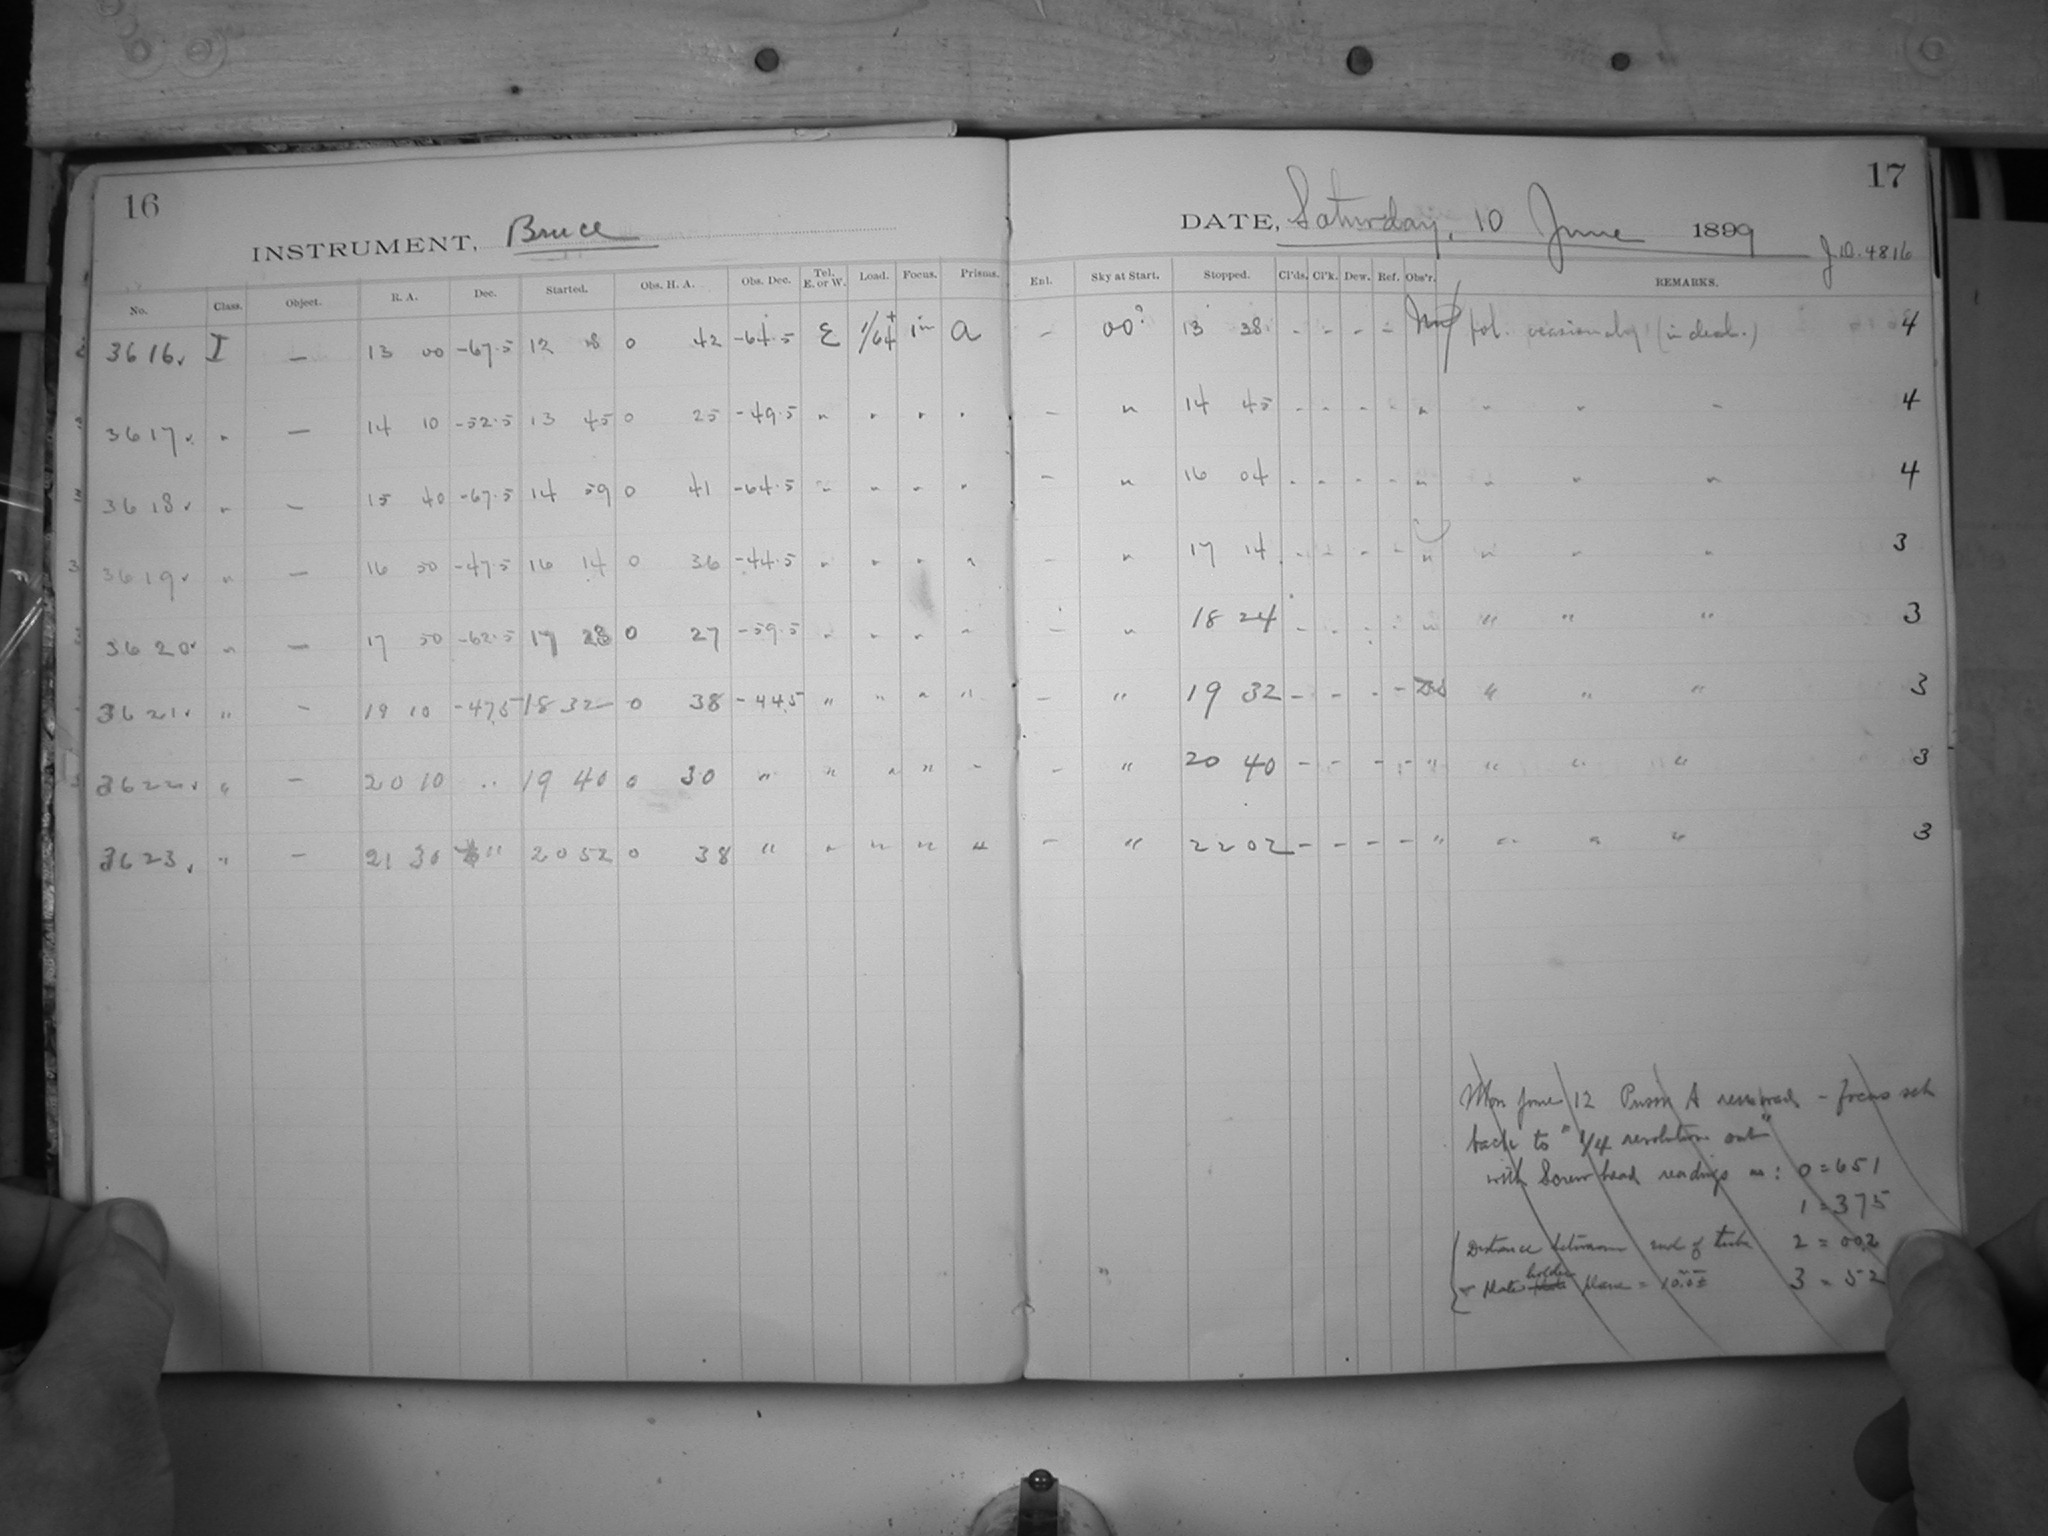 16
INSTRUMENT, Bruce
No. Class. Object. R. A. Dec. Started. Obs. H. A. Obs. Dec. Tel. E. or W. Load. Focus. Prisms.
3616 I — 13 00 -67.5 12 0 42 -64.5 E 1/64+ 1 in a
3617 " — 14 10 -52.5 13 45 0 25 -49.5 " " " "
3618 " — 15 40 -67.5 14 59 0 41 -64.5 " " " "
3619 " — 16 50 -47.5 16 14 0 36 -44.5 " " " "
3620 " — 17 50 -62.5 17 28 0 27 -59.5 " " " "
3621 " — 19 10 -47.5 18 32 0 38 -44.5 " " " "
3622 " — 20 10 " 19 40 0 30 " " " " "
3623 " — 21 30 " 20 52 0 38 " " " " "
17
DATE, Saturday, 10 June 1899
J.D. 4816
Enl. Sky at Start. Stopped. Cl'ds. Cl'k. Dew. Ref. Obs'r. REMARKS.
— 00? 13 38 - - - - fol. occasionally (in decl.) 4
— " 14 45 - - - - " " " " 4
— " 16 04 - - - - " " " " 4
— " 17 14 - - - - " " " " 3
— " 18 24 - - - - " " " " 3
— " 19 32 - - - - " " " 3
— " 20 40 - - - - " " " " 3
— " 22 02 - - - - " " " " 3
Mon June 12 Prism A removed - focus set
back to "1/4 revolution out"
with Screw head readings as: 0 = 651
1 = 375
Distance between end of tube 2 = 002
holder
plate plane = 3 = 52